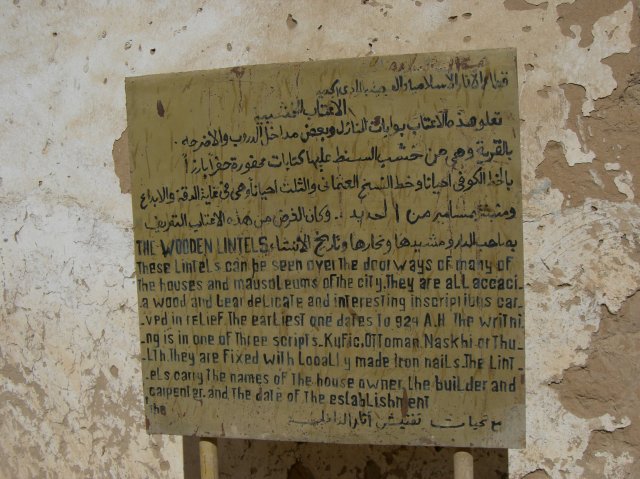 قطاع الآثار الإسلامية
الأعتاب الخشبية
تعلو هذه الأعتاب بوابات المنازل وبعض مداخل الدروب والأضرحه
بالقرية وهي من خشب السنط عليها كتابات محفورة حفرا بارزاً
بالخط الكوفى أحيانا وخط النسخ العثمانى والثلث أحيانا وهى فى غاية الدقة والابداع
ومثبتة بمسامير من الحديد .. وكان الغرض من هذه الأعتاب التعريف
بصاحب الدار ومشيدها ونجارها وتاريخ الانشاء
THE WOODEN LINTELS
These Lintels can be seen over the doorways of many of
the houses and mausoleums of the city. They are all accaci-
a wood and bear delicate and interesting inscriptions car-
ved in relief. The earliest one dates to 924 A.H The writni
ng is in one of three scripts. Kufic, Ottoman Naskhi or Thu-
Lth. They are fixed with Locally made Iron nails. The Lint-
els carry the names of the house owner, the builder and
carpenter, and the date of the establishment
The
تحيات تفتيش آثار الداخلة